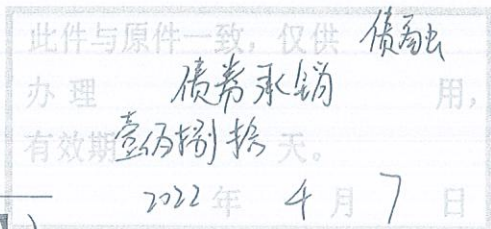 此件与原件一致，仅供 债融
办理 债券承销 用，
有效期壹佰捌拾天。
2022年 4月 7日